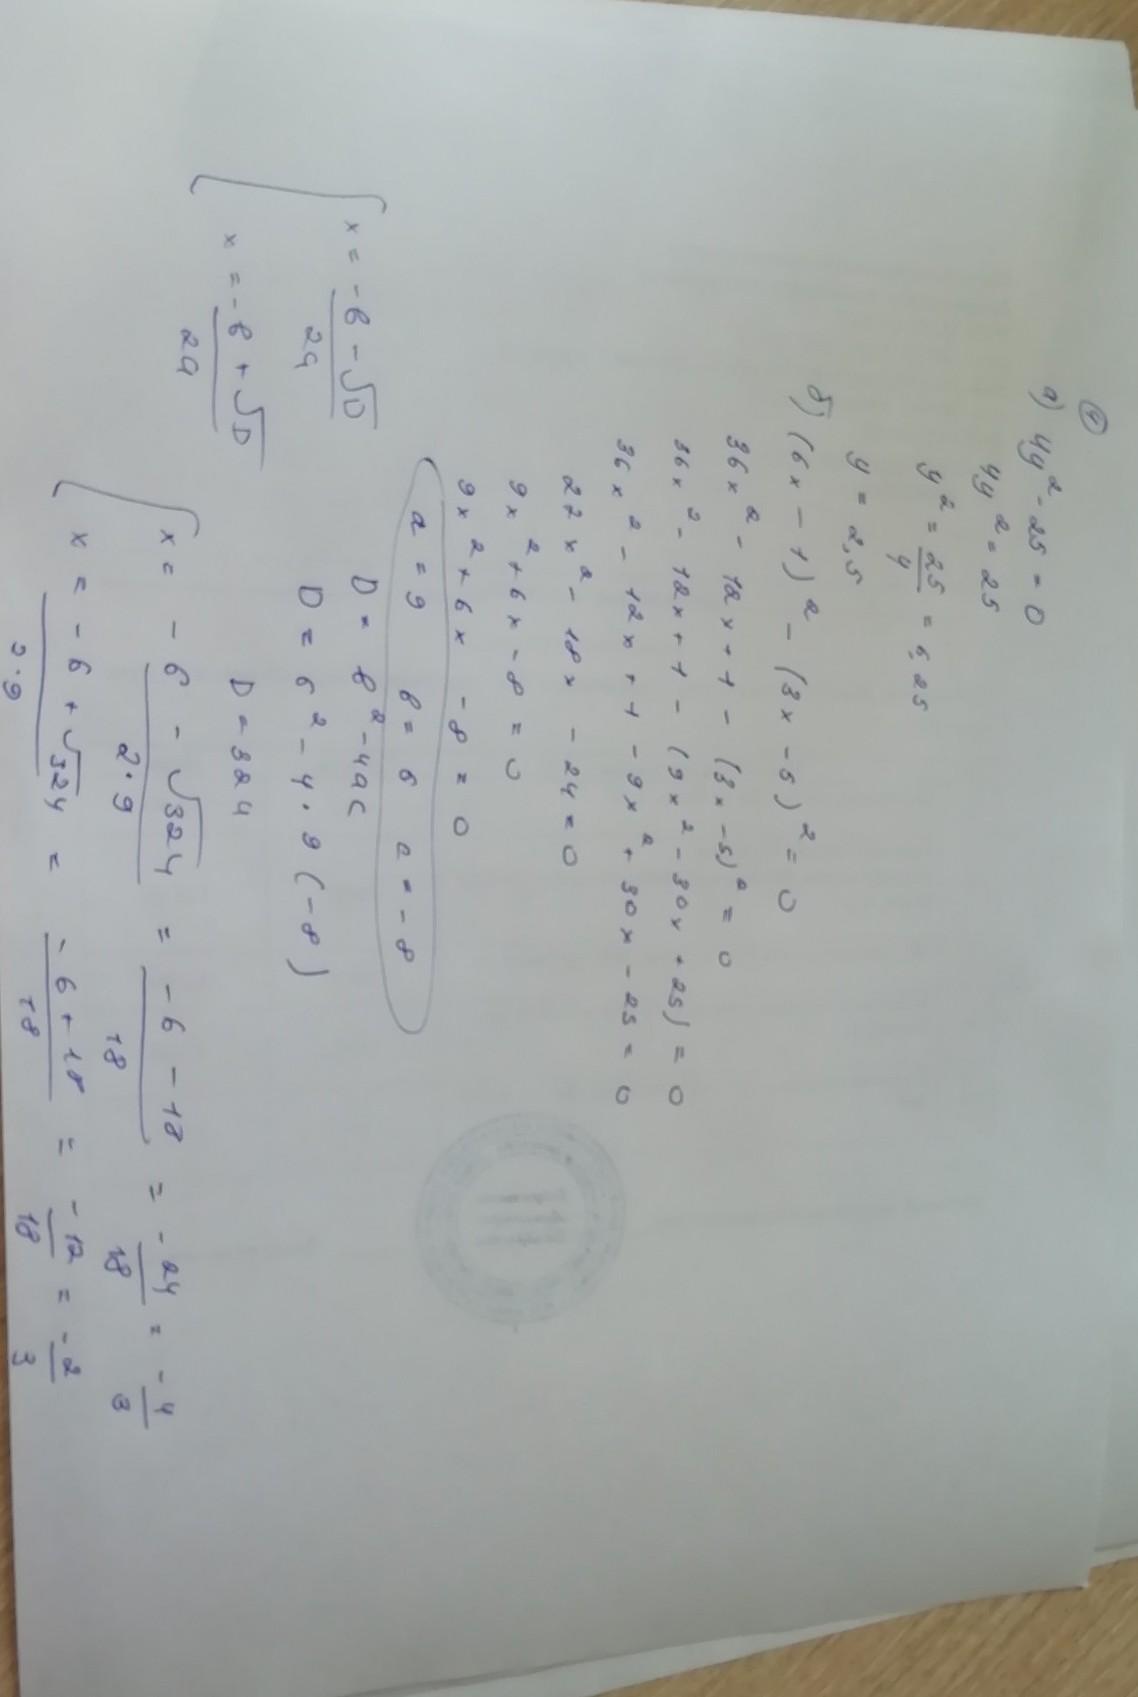 ④
а) 4y² - 25 = 0
4y² = 25
y² = 25/4 = 6,25
y = 2,5
б) (6x - 1)² - (3x - 5)² = 0
36x² - 12x + 1 - (3x - 5)² = 0
36x² - 12x + 1 - (9x² - 30x + 25) = 0
36x² - 12x + 1 - 9x² + 30x - 25 = 0
27x² - 18x - 24 = 0
9x² + 6x - 8 = 0
9x² + 6x - 8 = 0
a = 9 b = 6 c = -8
D = b² - 4ac
D = 6² - 4·9(-8)
D = 324
[ x = (-b - √D)/2a
x = (-b + √D)/2a
[ x = (-6 - √324)/(2·9) = (-6 - 18)/18 = -24/18 = -4/3
x = (-6 + √324)/(2·9) = (-6 + 18)/18 = -12/18 = -2/3